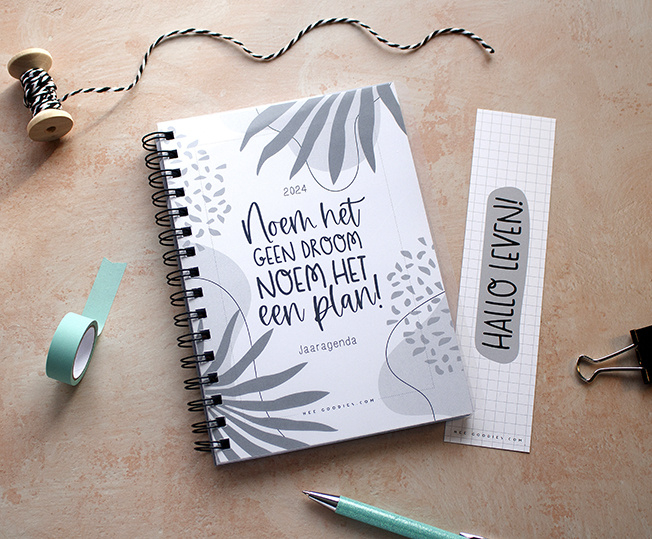 2024
Noem het
GEEN DROOM
NOEM HET
een plan!
Jaaragenda
HEE-GOODIES.COM
HALLO LEVEN!
HEE-GOODIES.COM